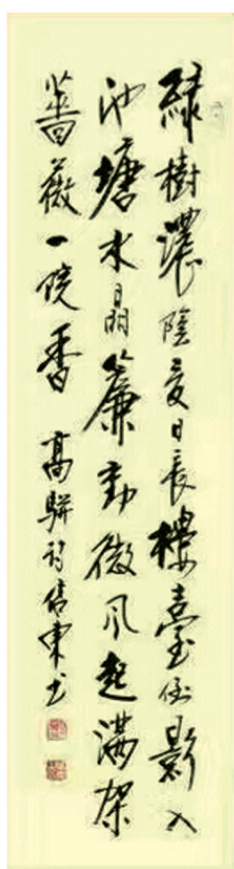 綠樹濃陰夏日長樓臺倒影入
池塘水晶簾動微風起滿架
薔薇一院香 高駢詩信東書